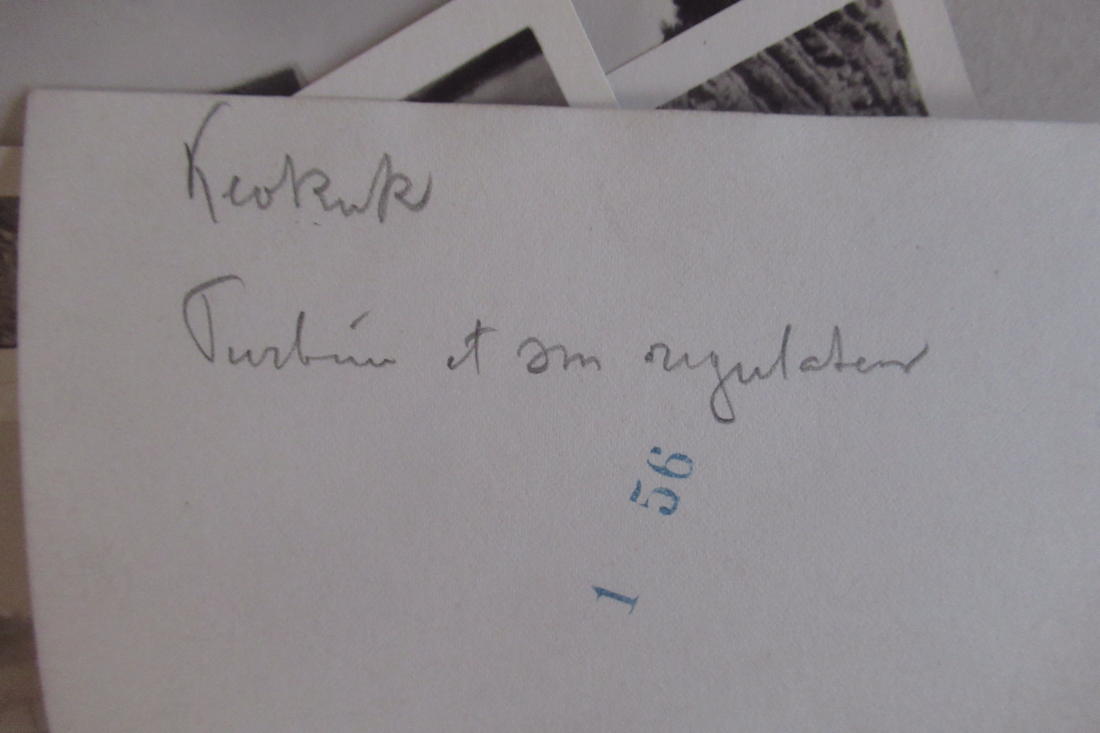 Keokuk
Turbine et son regulateur
1 56